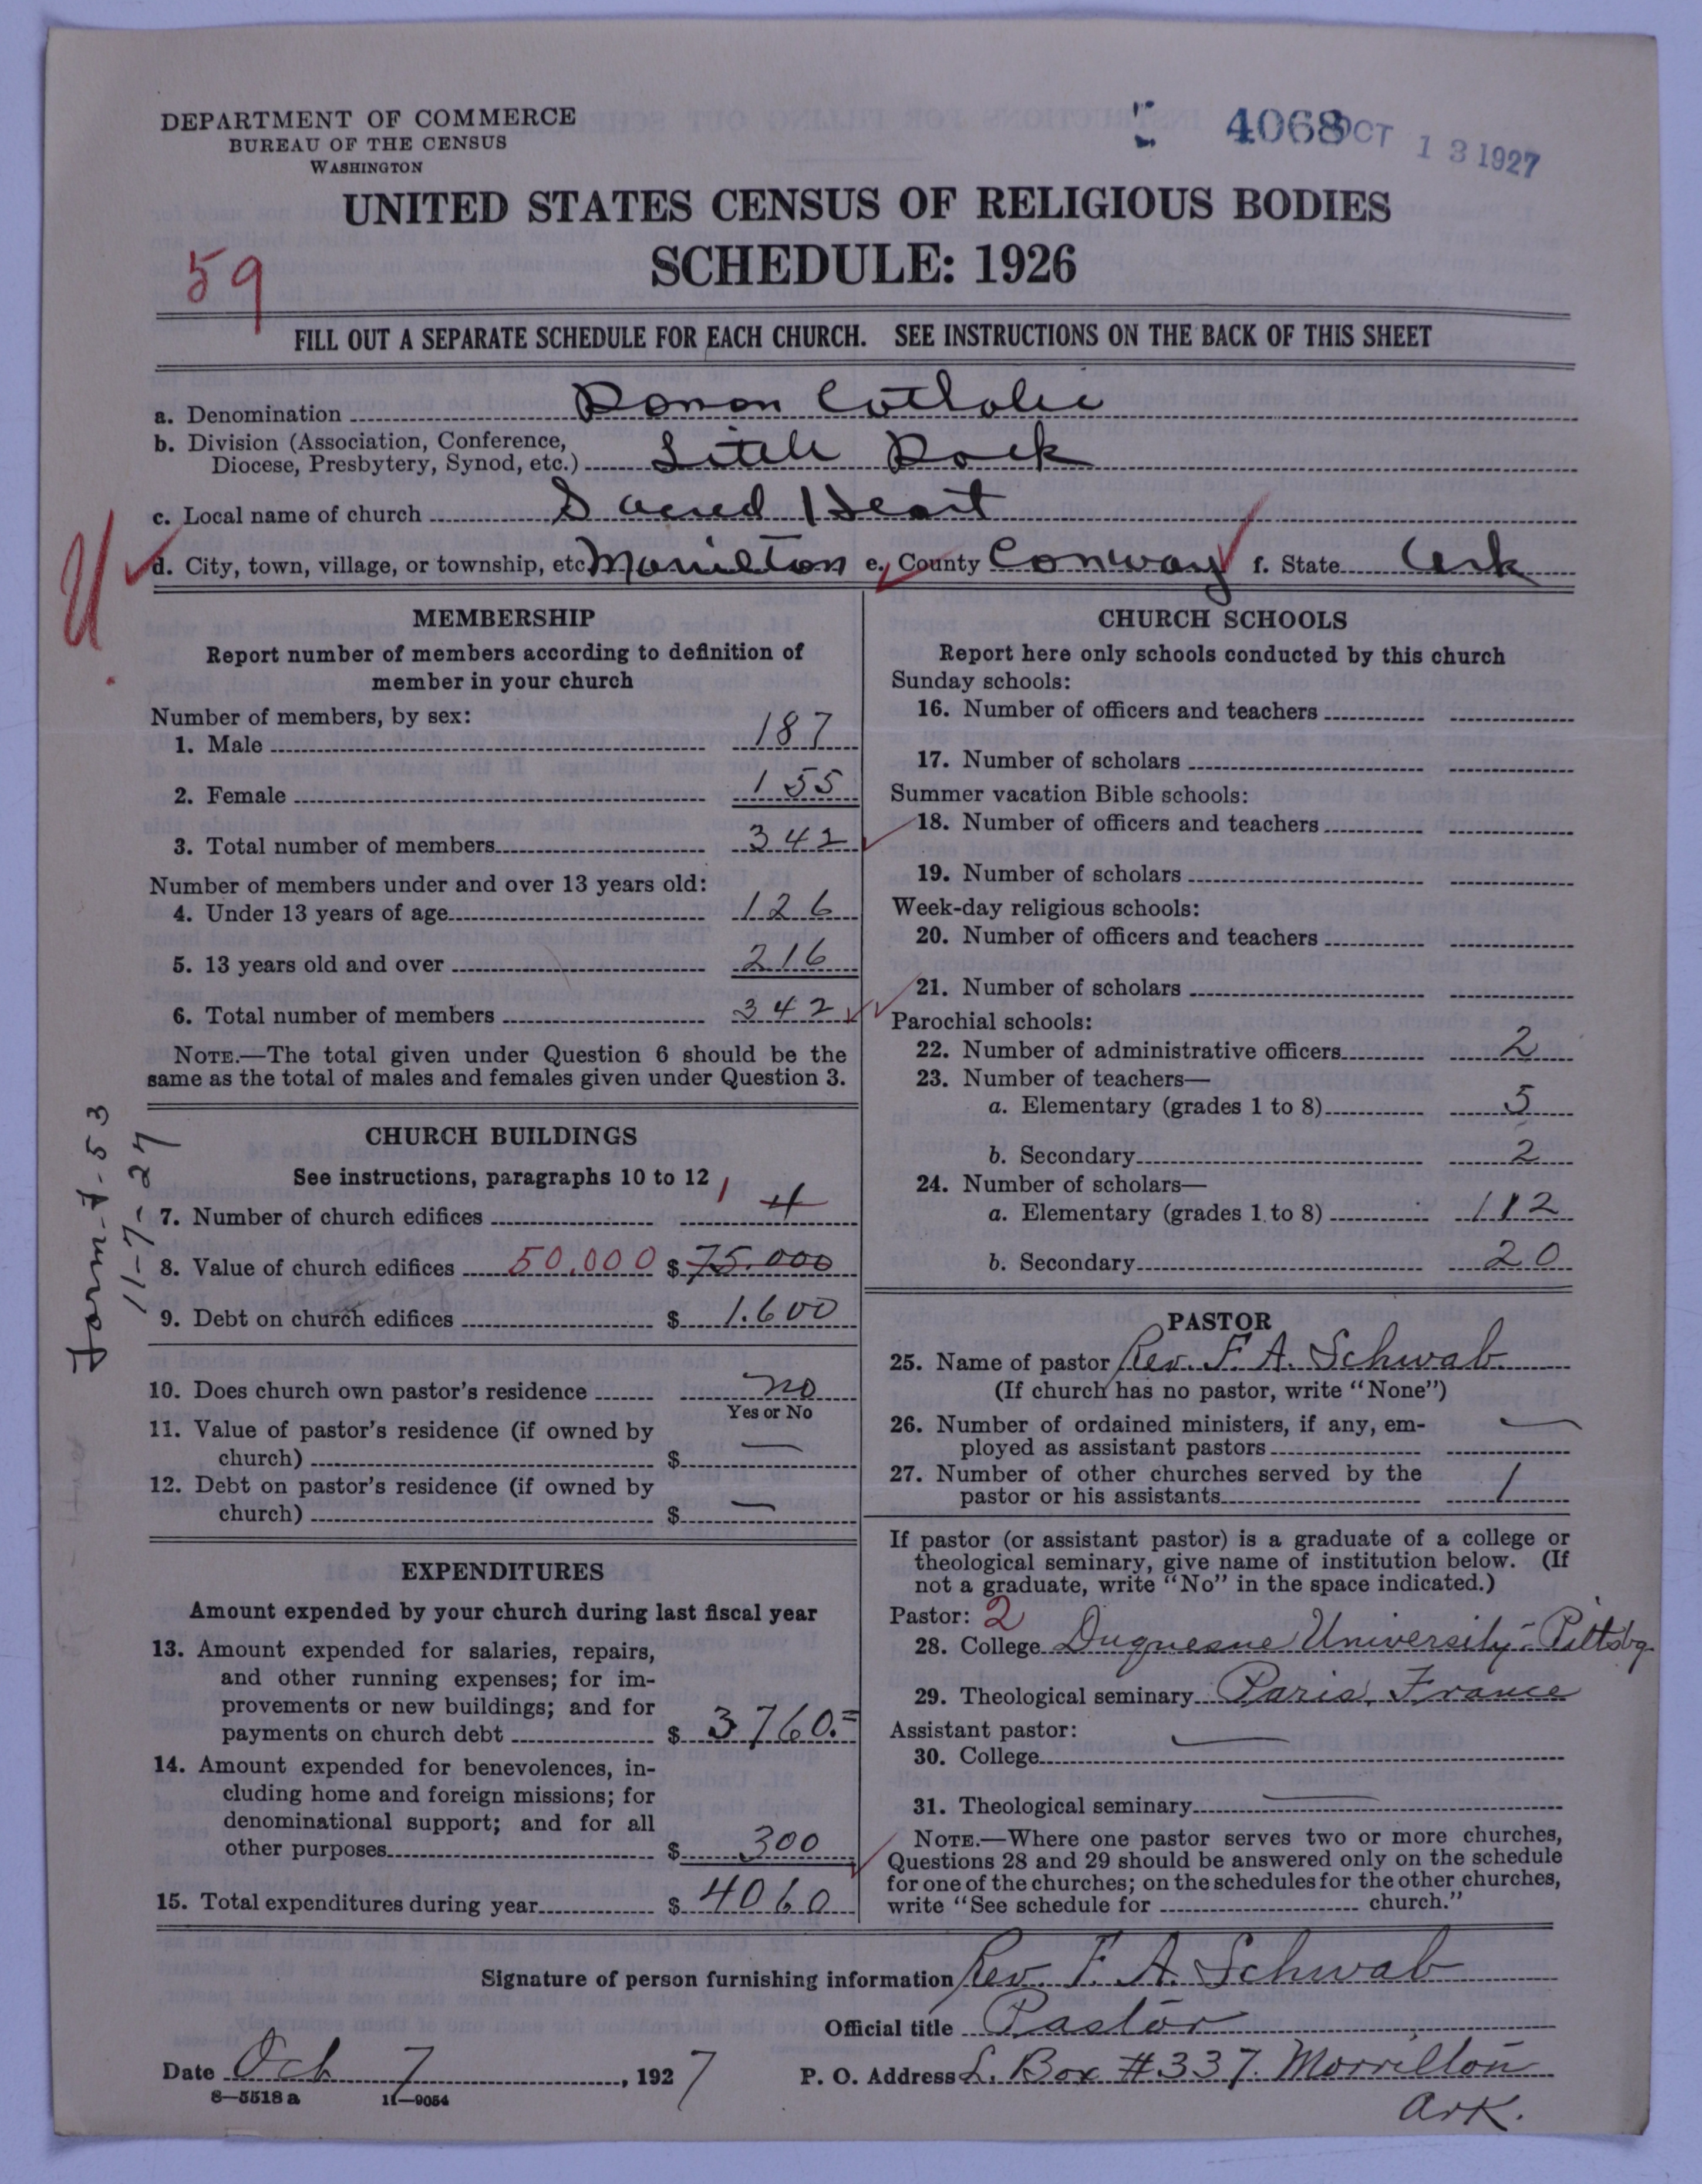 DEPARTMENT OF COMMERCE
BUREAU OF THE CENSUS
WASHINGTON
4068 OCT 13 1927
UNITED STATES CENSUS OF RELIGIOUS BODIES
SCHEDULE: 1926
59
FILL OUT A SEPARATE SCHEDULE FOR EACH CHURCH. SEE INSTRUCTIONS ON THE BACK OF THIS SHEET
a. Denomination Roman Catholic
b. Division (Association, Conference,
Diocese, Presbytery, Synod, etc.) Little Rock
c. Local name of church Sacred Heart
d. City, town, village, or township, etc. Morrilton e. County Conway f. State Ark
U
MEMBERSHIP
Report number of members according to definition of
member in your church
Number of members, by sex:
1. Male 187
2. Female 155
3. Total number of members 342
Number of members under and over 13 years old:
4. Under 13 years of age 126
5. 13 years old and over 216
6. Total number of members 342
NOTE.—The total given under Question 6 should be the
same as the total of males and females given under Question 3.
CHURCH BUILDINGS
See instructions, paragraphs 10 to 12
7. Number of church edifices 1 4
8. Value of church edifices 50,000 $ 75.000
9. Debt on church edifices $ 1.600
10. Does church own pastor's residence no
Yes or No
11. Value of pastor's residence (if owned by
church) $ —
12. Debt on pastor's residence (if owned by
church) $ —
Form-7-53
11-7-27
EXPENDITURES
Amount expended by your church during last fiscal year
13. Amount expended for salaries, repairs,
and other running expenses; for im-
provements or new buildings; and for
payments on church debt $ 3760.=
14. Amount expended for benevolences, in-
cluding home and foreign missions; for
denominational support; and for all
other purposes $ 300
15. Total expenditures during year $ 4060
CHURCH SCHOOLS
Report here only schools conducted by this church
Sunday schools:
16. Number of officers and teachers
17. Number of scholars
Summer vacation Bible schools:
18. Number of officers and teachers
19. Number of scholars
Week-day religious schools:
20. Number of officers and teachers
21. Number of scholars
Parochial schools:
22. Number of administrative officers 2
23. Number of teachers—
a. Elementary (grades 1 to 8) 5
b. Secondary 2
24. Number of scholars—
a. Elementary (grades 1 to 8) 112
b. Secondary 20
PASTOR
25. Name of pastor Rev. F. A. Schwab
(If church has no pastor, write "None")
26. Number of ordained ministers, if any, em-
ployed as assistant pastors —
27. Number of other churches served by the
pastor or his assistants 1
If pastor (or assistant pastor) is a graduate of a college or
theological seminary, give name of institution below. (If
not a graduate, write "No" in the space indicated.)
Pastor: 2
28. College Duquesne University - Pittsbg.
29. Theological seminary Paris, France
Assistant pastor: —
30. College
31. Theological seminary —
NOTE.—Where one pastor serves two or more churches,
Questions 28 and 29 should be answered only on the schedule
for one of the churches; on the schedules for the other churches,
write "See schedule for church."
Signature of person furnishing information Rev. F. A. Schwab
Official title Pastor
Date Oct 7, 1927 P. O. Address L. Box #337. Morrilton
Ark.
8—5518 a 11—9054